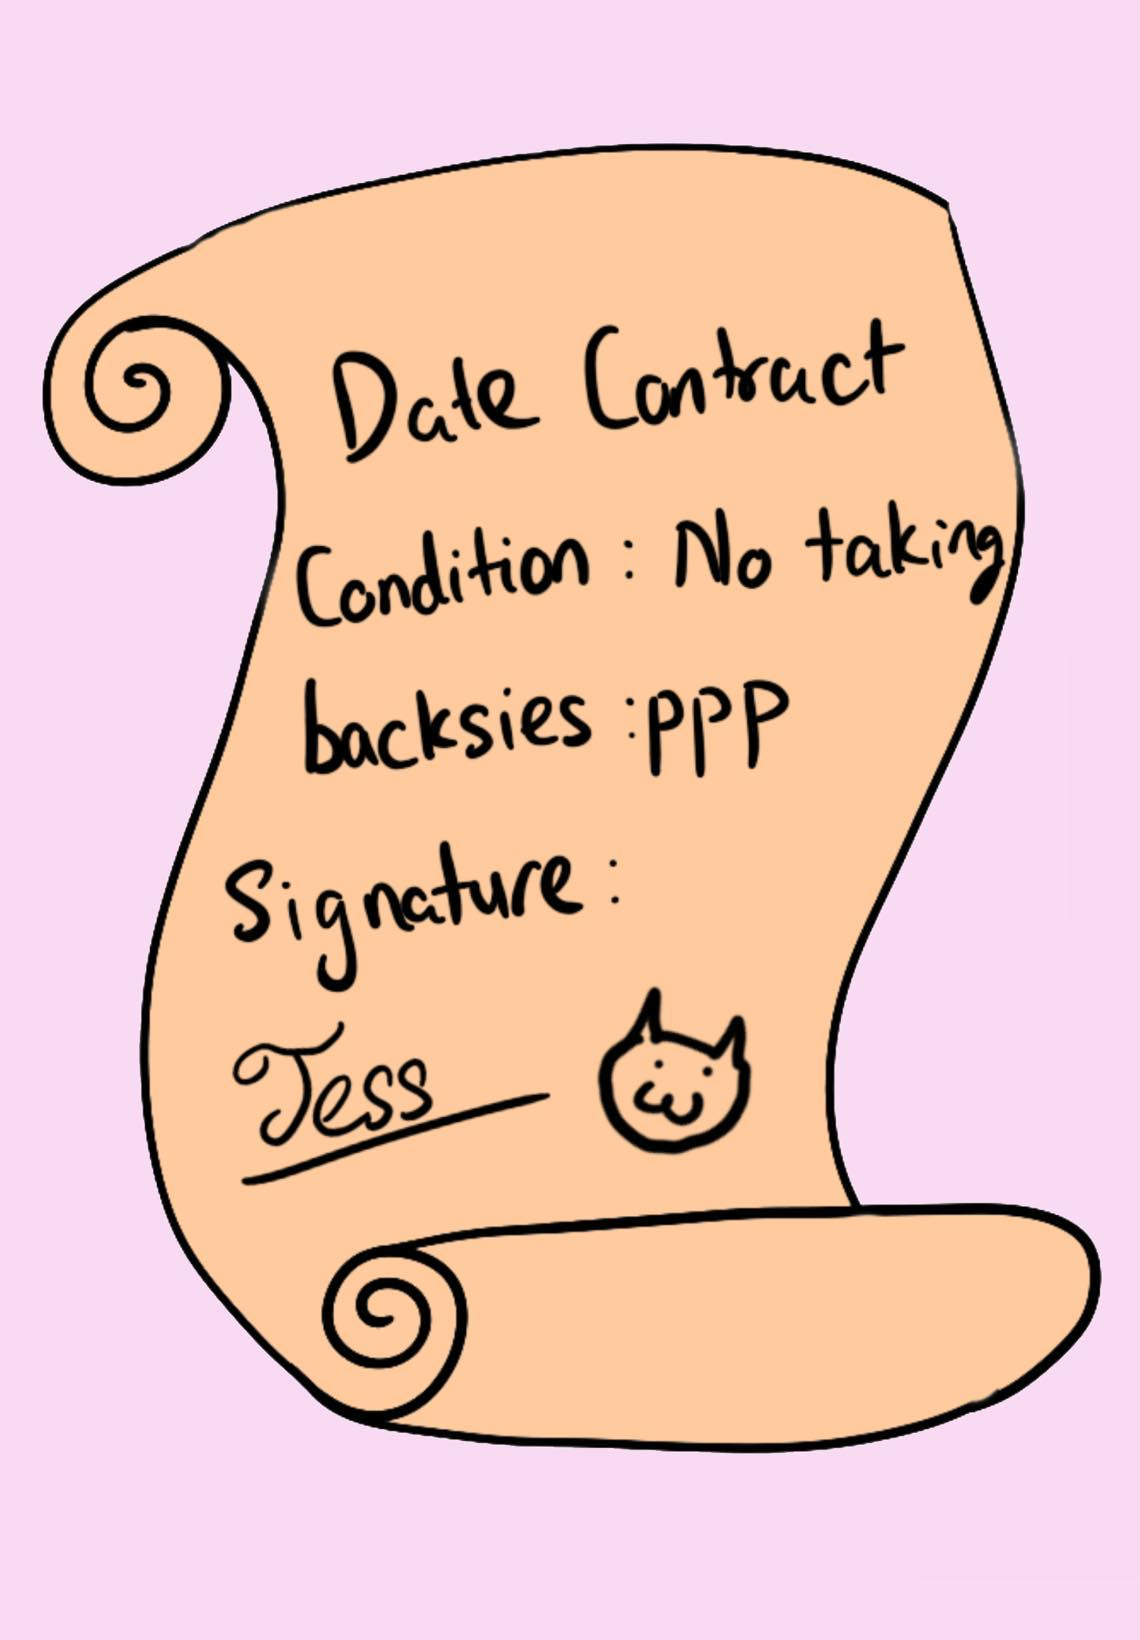 Date Contract
Condition : No taking
backsies :ppp
Signature :
Tess